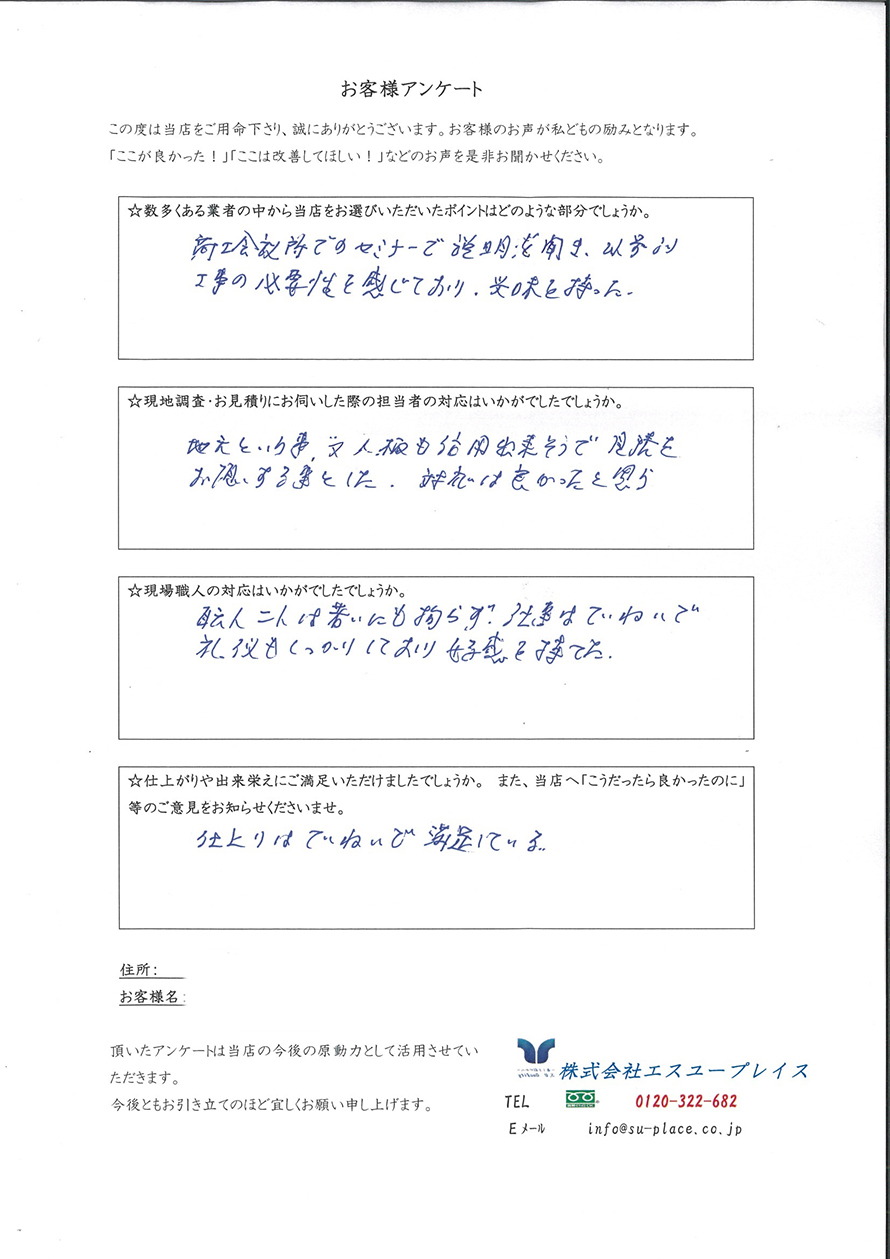 お客様アンケート
この度は当店をご用命下さり、誠にありがとうございます。お客様のお声が私どもの励みとなります。
「ここが良かった！」「ここは改善してほしい！」などのお声を是非お聞かせください。
☆数多くある業者の中から当店をお選びいただいたポイントはどのような部分でしょうか。
商工会議所でのセミナーで説明を聞き、以前より
工事の必要性を感じており、興味を持った.
☆現地調査・お見積りにお伺いした際の担当者の対応はいかがでしたでしょうか。
地元という事、又人柄も信用出来そうで見積を
お願いする事とした. 対応は良かったと思う
☆現場職人の対応はいかがでしたでしょうか。
職人二人は若いにも拘らず、仕事はていねいで
礼儀もしっかりしており好感を持てた.
☆仕上がりや出来栄えにご満足いただけましたでしょうか。 また、当店へ「こうだったら良かったのに」
等のご意見をお知らせくださいませ。
仕上りはていねいで満足している.
住所：
お客様名：
頂いたアンケートは当店の今後の原動力として活用させてい
ただきます。
今後ともお引き立てのほど宜しくお願い申し上げます。
株式会社エスユープレイス
TEL 0120-322-682
Eメール info@su-place.co.jp